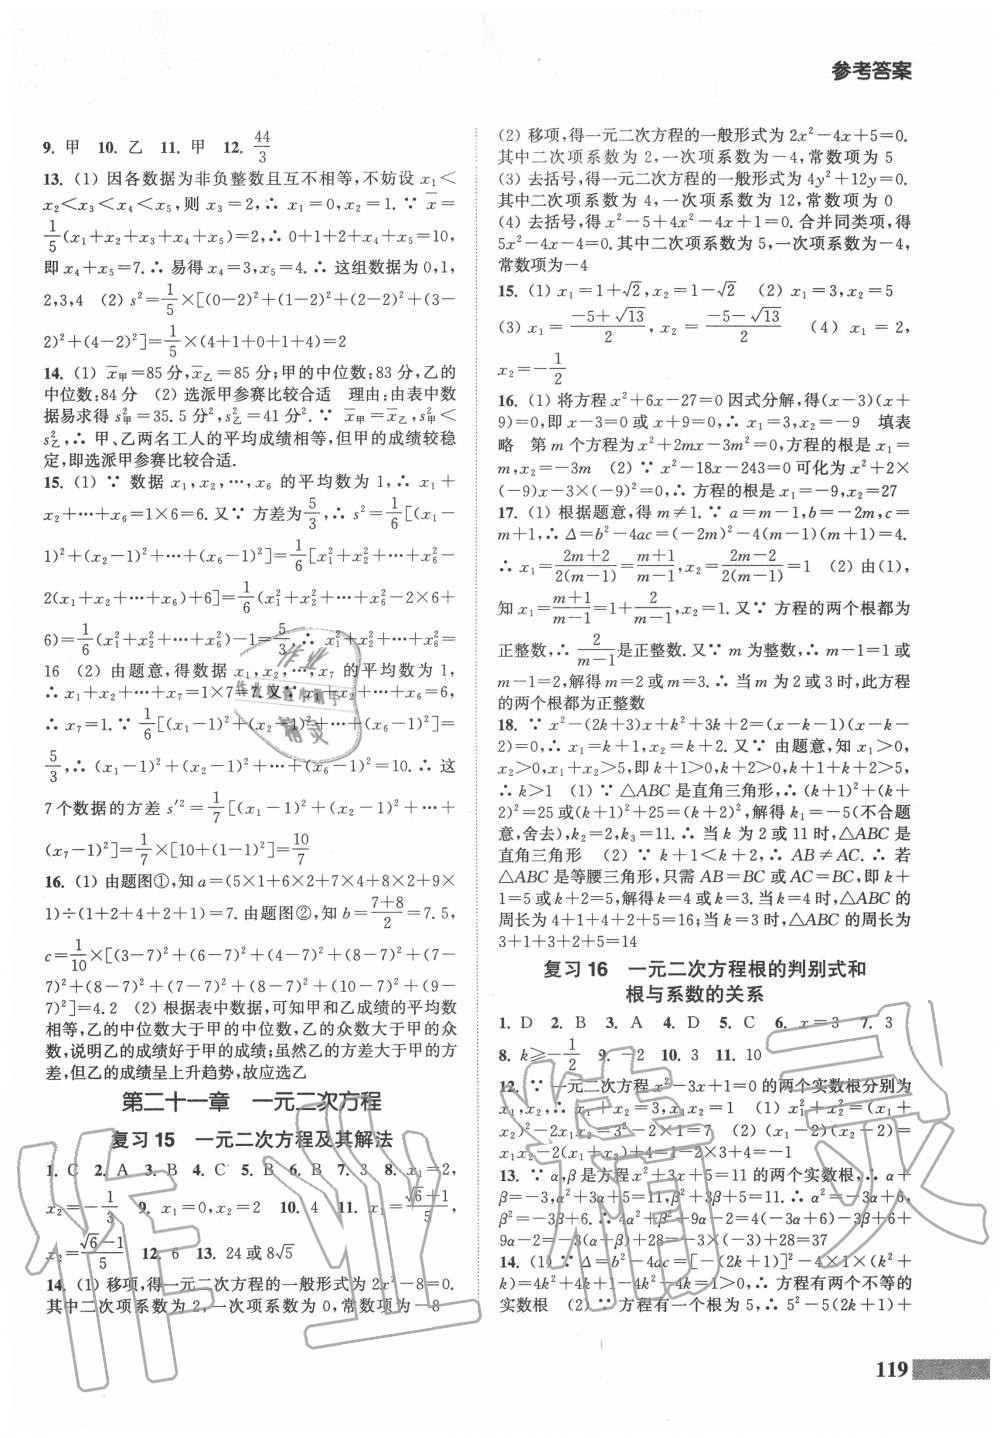 参考答案
9. 甲 10. 乙 11. 甲 12. 44/3
13. (1) 因各数据为非负整数且互不相等,不妨设 x₁<
x₂<x₃<x₄<x₅,则 x₃=2,∴ x₁=0,x₂=1. ∵ x̄=
1/5(x₁+x₂+x₃+x₄+x₅)=2,∴ 0+1+2+x₄+x₅=10,
即 x₄+x₅=7.∴ 易得 x₄=3,x₅=4.∴ 这组数据为 0,1,
2,3,4 (2) s²=1/5×[(0-2)²+(1-2)²+(2-2)²+(3-
2)²+(4-2)²]=1/5×(4+1+0+1+4)=2
14. (1) x̄甲=85 分,x̄乙=85 分;甲的中位数:83 分,乙的
中位数:84 分 (2) 选派甲参赛比较合适 理由:由表中数
据易求得 s²甲=35.5 分²,s²乙=41 分².∵ x̄甲=x̄乙,s²甲<
s²乙,∴ 甲、乙两名工人的平均成绩相等,但甲的成绩较稳
定,即选派甲参赛比较合适.
15. (1) ∵ 数据 x₁,x₂,…,x₆ 的平均数为 1,∴ x₁+
x₂+…+x₆=1×6=6.又∵ 方差为5/3,∴ s²=1/6[(x₁-
1)²+(x₂-1)²+…+(x₆-1)²]=1/6[x₁²+x₂²+…+x₆²-
2(x₁+x₂+…+x₆)+6]=1/6(x₁²+x₂²+…+x₆²-2×6+
6)=1/6(x₁²+x₂²+…+x₆²)-1=5/3.∴ x₁²+x₂²+…+x₆²=
16 (2) 由题意,得数据 x₁,x₂,…,x₇ 的平均数为 1,
∴ x₁+x₂+…+x₇=1×7=7.又∵ x₁+x₂+…+x₆=6,
∴ x₇=1.∵ 1/6[(x₁-1)²+(x₂-1)²+…+(x₆-1)²]=
5/3,∴ (x₁-1)²+(x₂-1)²+…+(x₆-1)²=10.∴ 这
7个数据的方差 s′²=1/7[(x₁-1)²+(x₂-1)²+…+
(x₇-1)²]=1/7×[10+(1-1)²]=10/7
16. (1) 由题图①,知 a=(5×1+6×2+7×4+8×2+9×
1)÷(1+2+4+2+1)=7.由题图②,知 b=(7+8)/2=7.5,
c=1/10×[(3-7)²+(6-7)²+(4-7)²+(8-7)²+(7-
7)²+(8-7)²+(7-7)²+(8-7)²+(10-7)²+(9-
7)²]=4.2 (2) 根据表中数据,可知甲和乙成绩的平均数
相等,乙的中位数大于甲的中位数,乙的众数大于甲的众
数,说明乙的成绩好于甲的成绩;虽然乙的方差大于甲的方
差,但乙的成绩呈上升趋势,故应选乙
第二十一章 一元二次方程
复习 15 一元二次方程及其解法
1. C 2. A 3. B 4. C 5. B 6. B 7. 3 8. x₁=2,
x₂=-1/3 9. x₁=0,x₂=2 10. 4 11. x₁=(√6+1)/5,
x₂=(√6-1)/5 12. 6 13. 24 或 8√5
14. (1) 移项,得一元二次方程的一般形式为 2x²-8=0.
其中二次项系数为 2,一次项系数为 0,常数项为-8
(2) 移项,得一元二次方程的一般形式为 2x²-4x+5=0.
其中二次项系数为 2,一次项系数为-4,常数项为 5
(3) 去括号,得一元二次方程的一般形式为 4y²+12y=0.
其中二次项系数为 4,一次项系数为 12,常数项为 0
(4) 去括号,得 x²-5+4x²-4x+1=0. 合并同类项,得
5x²-4x-4=0.其中二次项系数为 5,一次项系数为-4,
常数项为-4
15. (1) x₁=1+√2,x₂=1-√2 (2) x₁=3,x₂=5
(3) x₁=(-5+√13)/2,x₂=(-5-√13)/2 (4) x₁=2,
x₂=-1/2
16. (1) 将方程 x²+6x-27=0 因式分解,得(x-3)(x+
9)=0,即 x-3=0 或 x+9=0,∴ x₁=3,x₂=-9 填表
略 第 m 个方程为 x²+2mx-3m²=0,方程的根是 x₁=
m,x₂=-3m (2) ∵ x²-18x-243=0 可化为 x²+2×
(-9)x-3×(-9)²=0,∴ 方程的根是 x₁=-9,x₂=27
17. (1) 根据题意,得 m≠1.∵ a=m-1,b=-2m,c=
m+1,∴ Δ=b²-4ac=(-2m)²-4(m-1)(m+1)=4.
∴ x₁=(2m+2)/2(m-1)=(m+1)/(m-1),x₂=(2m-2)/2(m-1)=1 (2) 由(1),
知 x₁=(m+1)/(m-1)=1+2/(m-1),x₂=1.又∵ 方程的两个根都为
正整数,∴ 2/(m-1)是正整数.又∵ m 为整数,∴ m-1=1 或
m-1=2,解得 m=2 或 m=3.∴ 当 m 为 2 或 3 时,此方程
的两个根都为正整数
18. ∵ x²-(2k+3)x+k²+3k+2=(x-k-1)(x-k-
2)=0,∴ x₁=k+1,x₂=k+2.又∵ 由题意,知 x₁>0,
x₂>0,x₁+x₂>5,即 k+1>0,k+2>0,k+1+k+2>5,
∴ k>1 (1) ∵ △ABC 是直角三角形,∴ (k+1)²+(k+
2)²=25 或(k+1)²+25=(k+2)²,解得 k₁=-5(不合题
意,舍去),k₂=2,k₃=11.∴ 当 k 为 2 或 11 时,△ABC 是
直角三角形 (2) ∵ k+1<k+2,∴ AB≠AC.∴ 若
△ABC 是等腰三角形,只需 AB=BC 或 AC=BC,即 k+
1=5 或 k+2=5,解得 k=4 或 k=3.当 k=4 时,△ABC 的
周长为 4+1+4+2+5=16;当 k=3 时,△ABC 的周长为
3+1+3+2+5=14
复习 16 一元二次方程根的判别式和
根与系数的关系
1. D 2. B 3. A 4. D 5. C 6. x=3 7. 3
8. k≥-1/2 9. -2 10. 3 11. 10
12. ∵ 一元二次方程 x²-3x+1=0 的两个实数根分别为
x₁,x₂,∴ x₁+x₂=3,x₁x₂=1 (1) x₁²+x₂²=(x₁+
x₂)²-2x₁x₂=3²-2×1=7 (2) (x₁-2)(x₂-2)=
x₁x₂-2(x₁+x₂)+4=1-2×3+4=-1
13. ∵ α,β 是方程 x²+3x+5=11 的两个实数根,∴ α+
β=-3,α²+3α+5=11,β²+3β+5=11.∴ α²=-3α+6,
β²=-3β+6.∴ 4α²+β²-9α-2=4(-3α+6)-3β+6+
9α-2=-3(α+β)+28=-3×(-3)+28=37
14. (1)∵ Δ=b²-4ac=[-(2k+1)]²-4×1×(k²+
k)=4k²+4k+1-4k²-4k=1>0,∴ 方程有两个不等的
实数根 (2) ∵ 方程有一个根为 5,∴ 5²-5(2k+1)+
119
作业
作业检查小助手
精灵
作业精灵